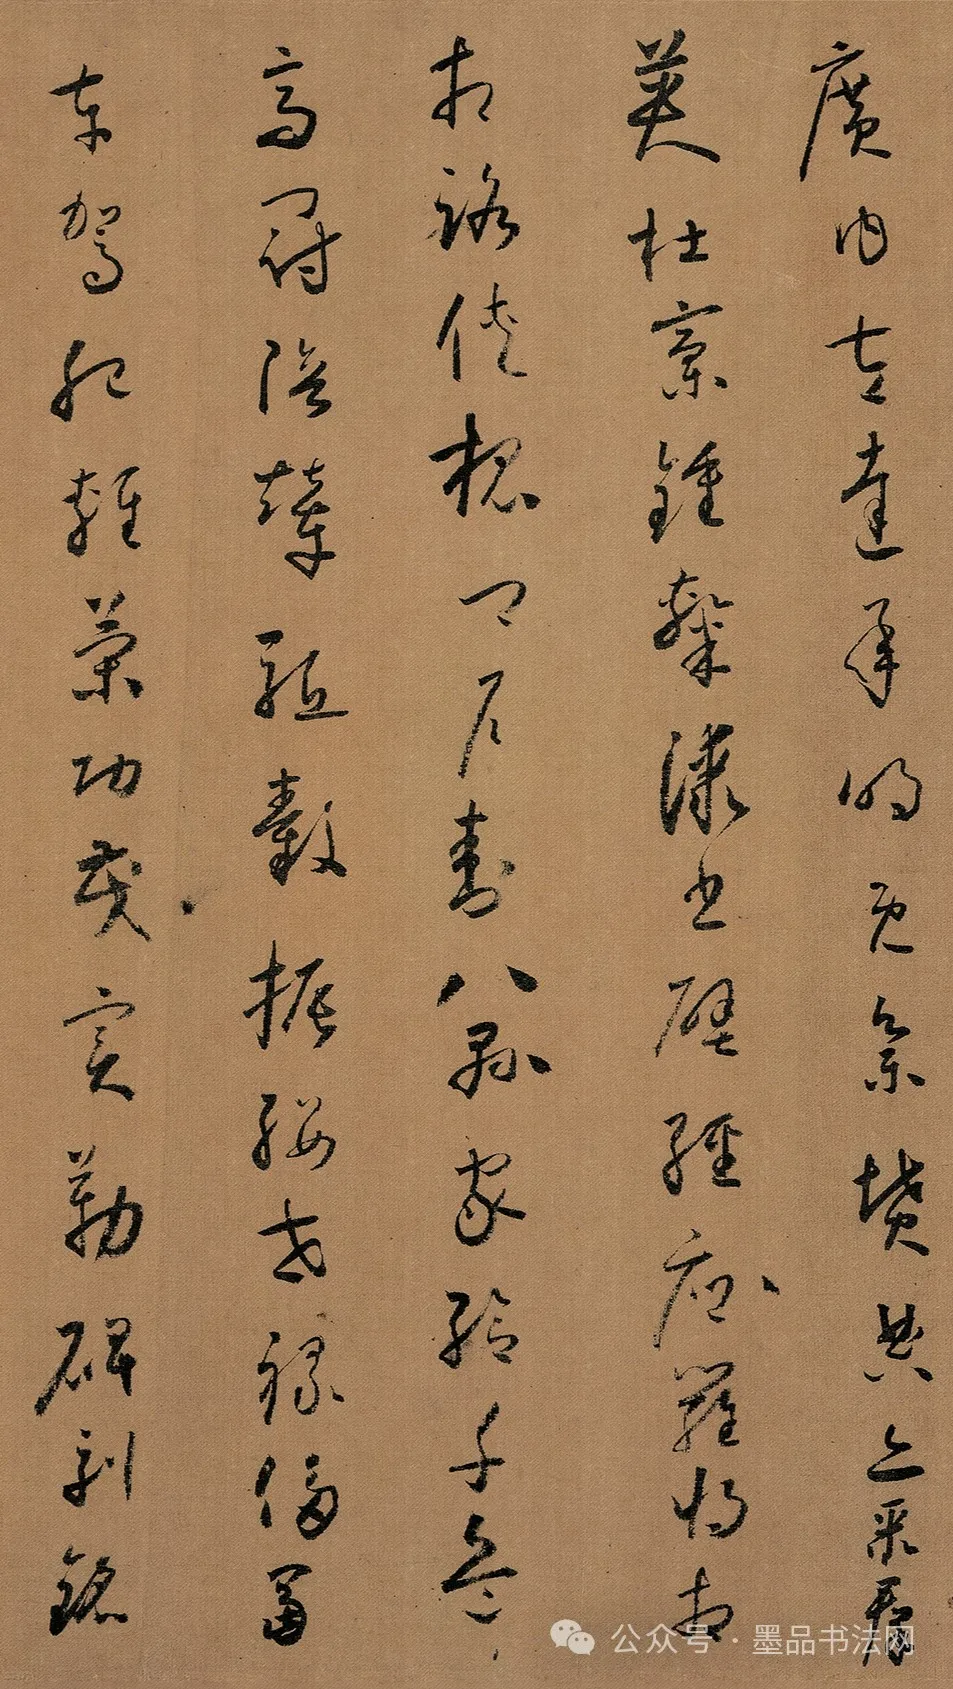 廣內左達承明既集墳典亦聚群
英杜稾鍾隸漆書壁經府羅將相
相路俠槐卿戶封八縣家給千兵
高冠陪輦驅轂振纓世祿侈富
車駕肥輕策功茂實勒碑刻銘
公众号·墨品书法网